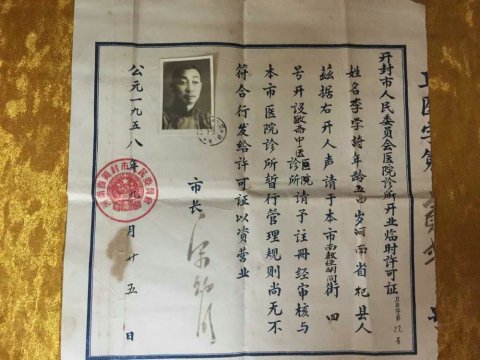 卫医字第
开封市人民委员会医院诊所开业临时许可证
卫医字第12号
姓名李学詩年龄五四岁河南省杞县人
茲据右开人声请于本市南教经胡同街四
号开设中医医院诊所请予註册经审核与
本市医院诊所暂行管理规则尚无不
符合行发给许可证以资营业
市长
公元一九五八年九月十五日
河南省開封市人民委員會